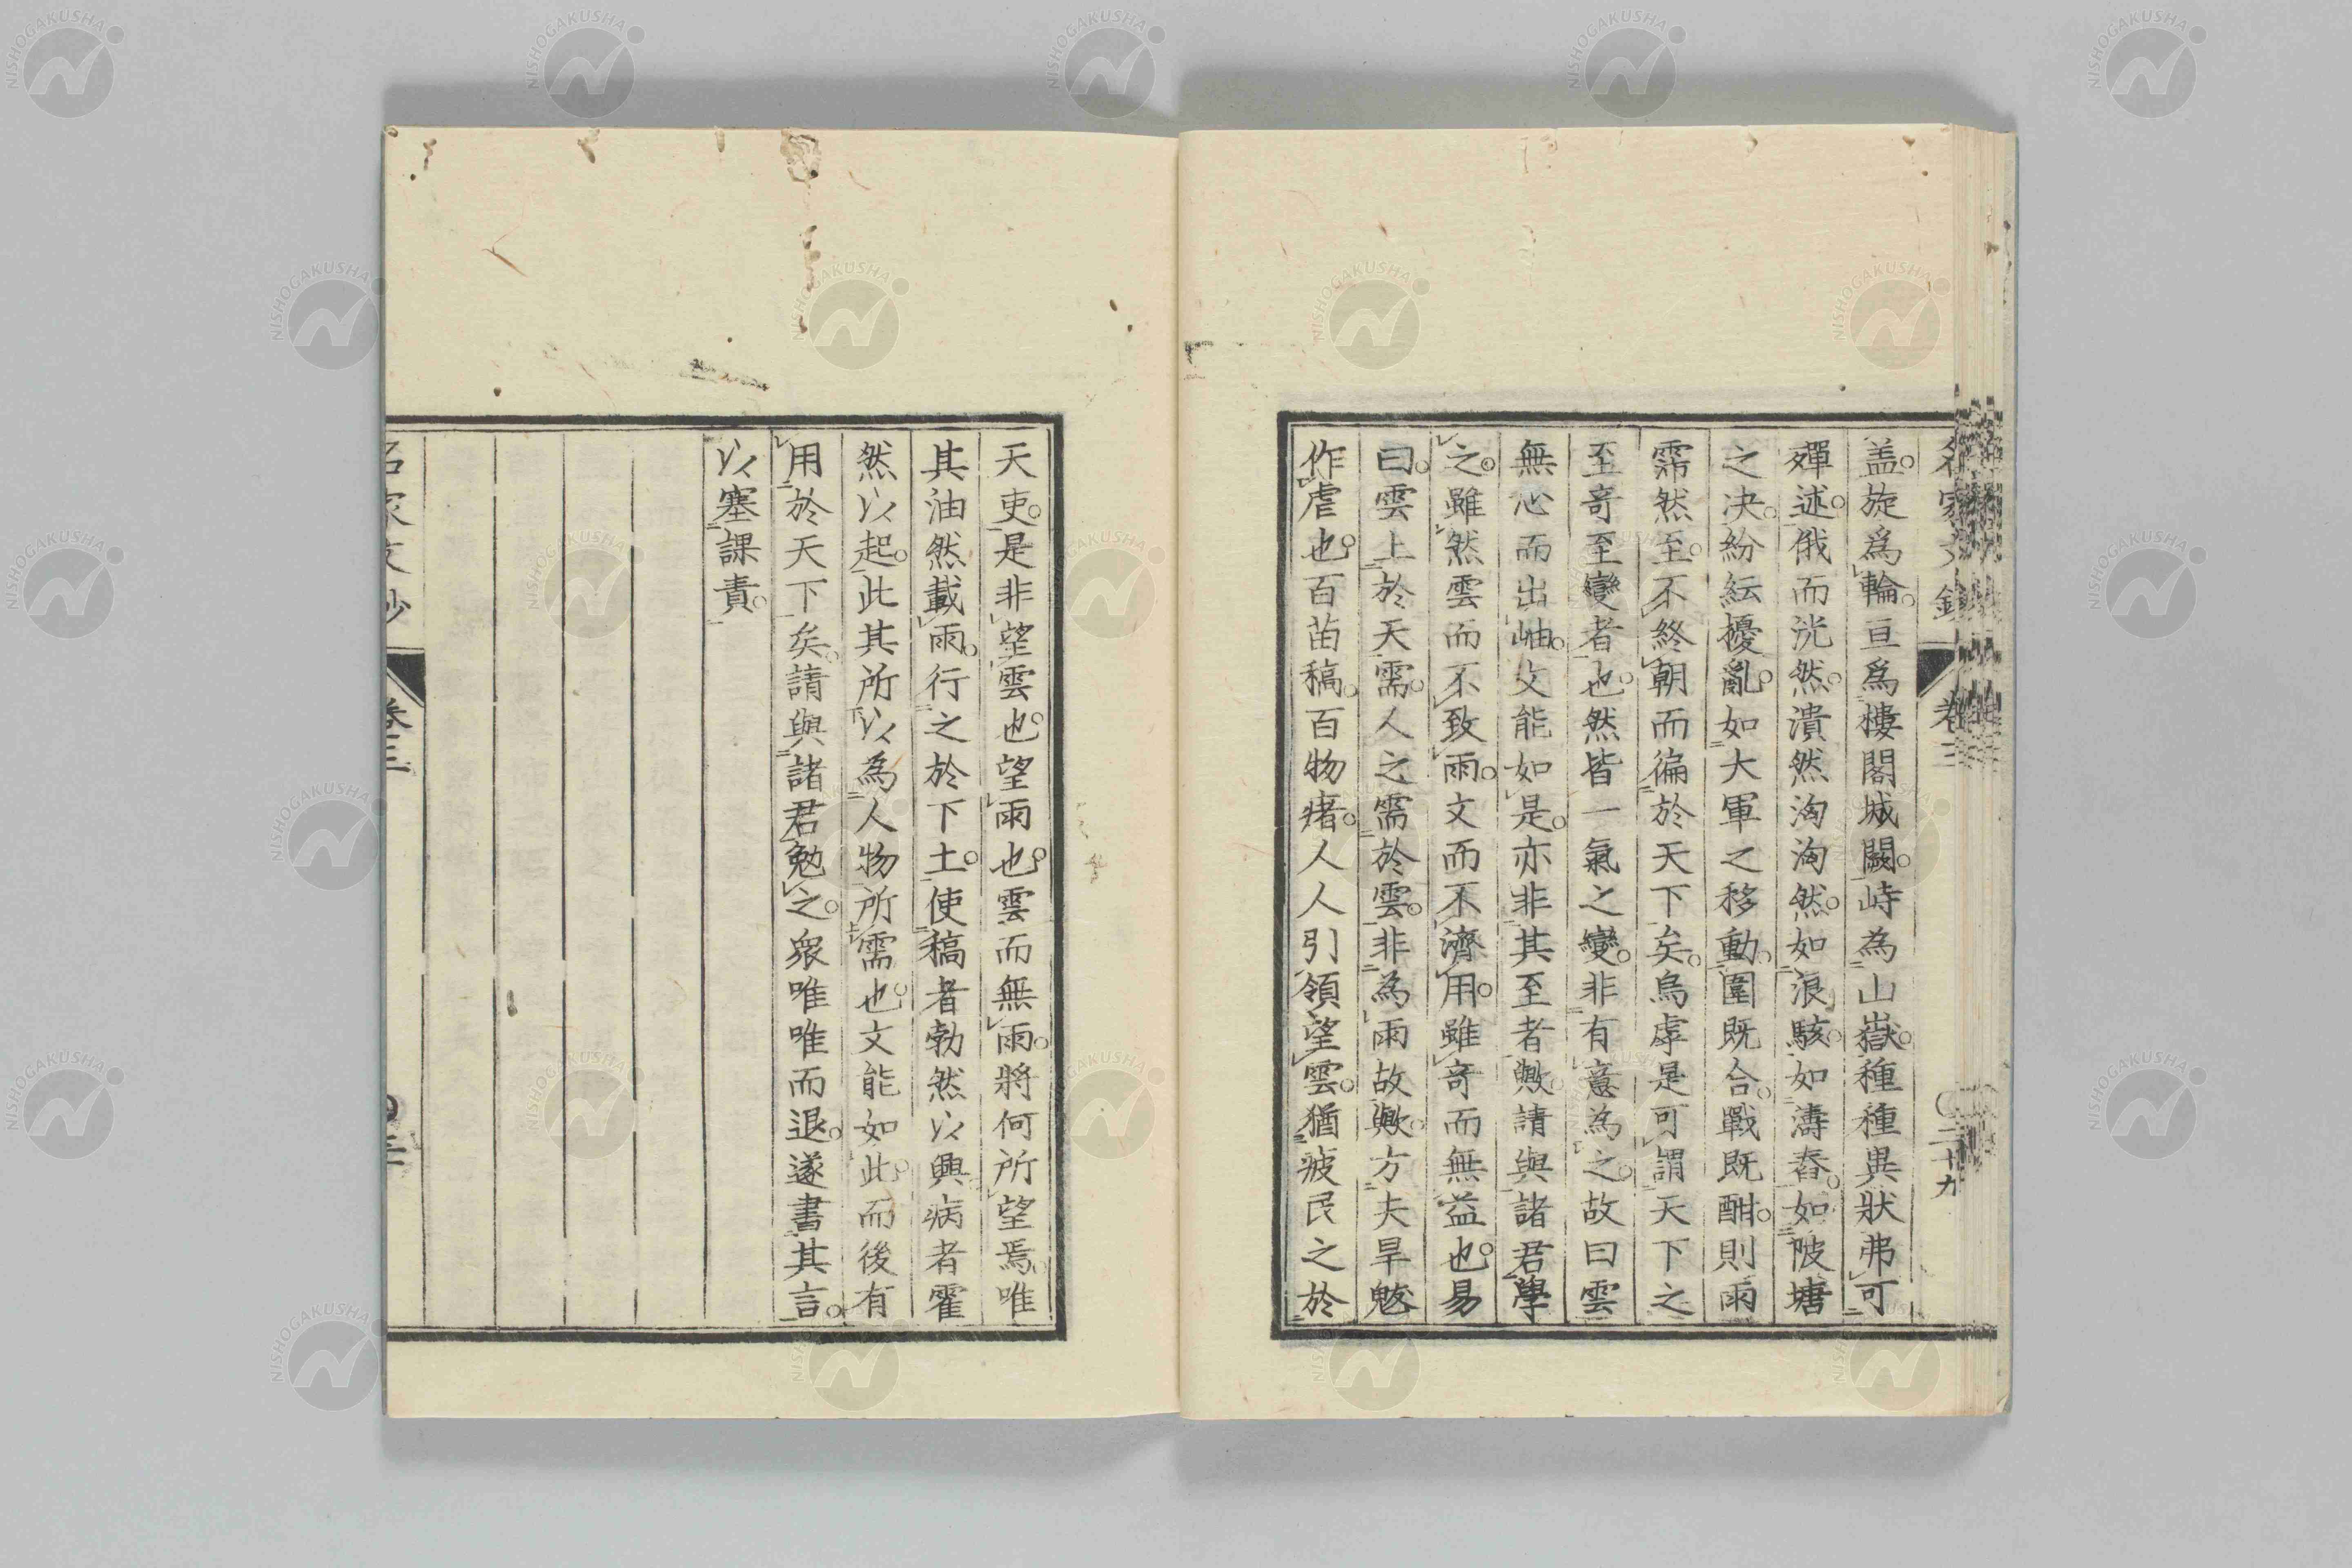 盖。旋爲輪。亘爲樓閣城闕。峙為山嶽。種種異狀弗可
殫述。俄而洸然。潰然洶洶然。如浪駭。如濤舂。如陂塘
之决。紛紜擾亂。如大軍之移動。圍既合。戰既酣。則雨
霈然至。不終朝而徧於天下矣。烏虖是可謂天下之
至奇至變者也。然皆一氣之變。非有意為之。故曰雲
無心而出岫。文能如是。亦非其至者歟。請與諸君學
之。雖然雲而不致雨。文而不濟用。雖奇而無益也。易
曰。雲上於天需。人之需於雲。非為雨故歟。方夫旱魃
作虐也。百苗稿。百物瘏。人人引領望雲。猶疲民之於
名家文鈔
卷三
二十九
天吏。是非望雲也。望雨也。雲而無雨。將何所望焉。唯
其油然載雨。行之於下土。使稿者勃然以興病者霍
然以起。此其所以為人物所需也。文能如此。而後有
用於天下矣。請與諸君勉之。衆唯唯而退。遂書其言。
以塞課責。
名家文鈔
卷三
NISHOGAKUSHA